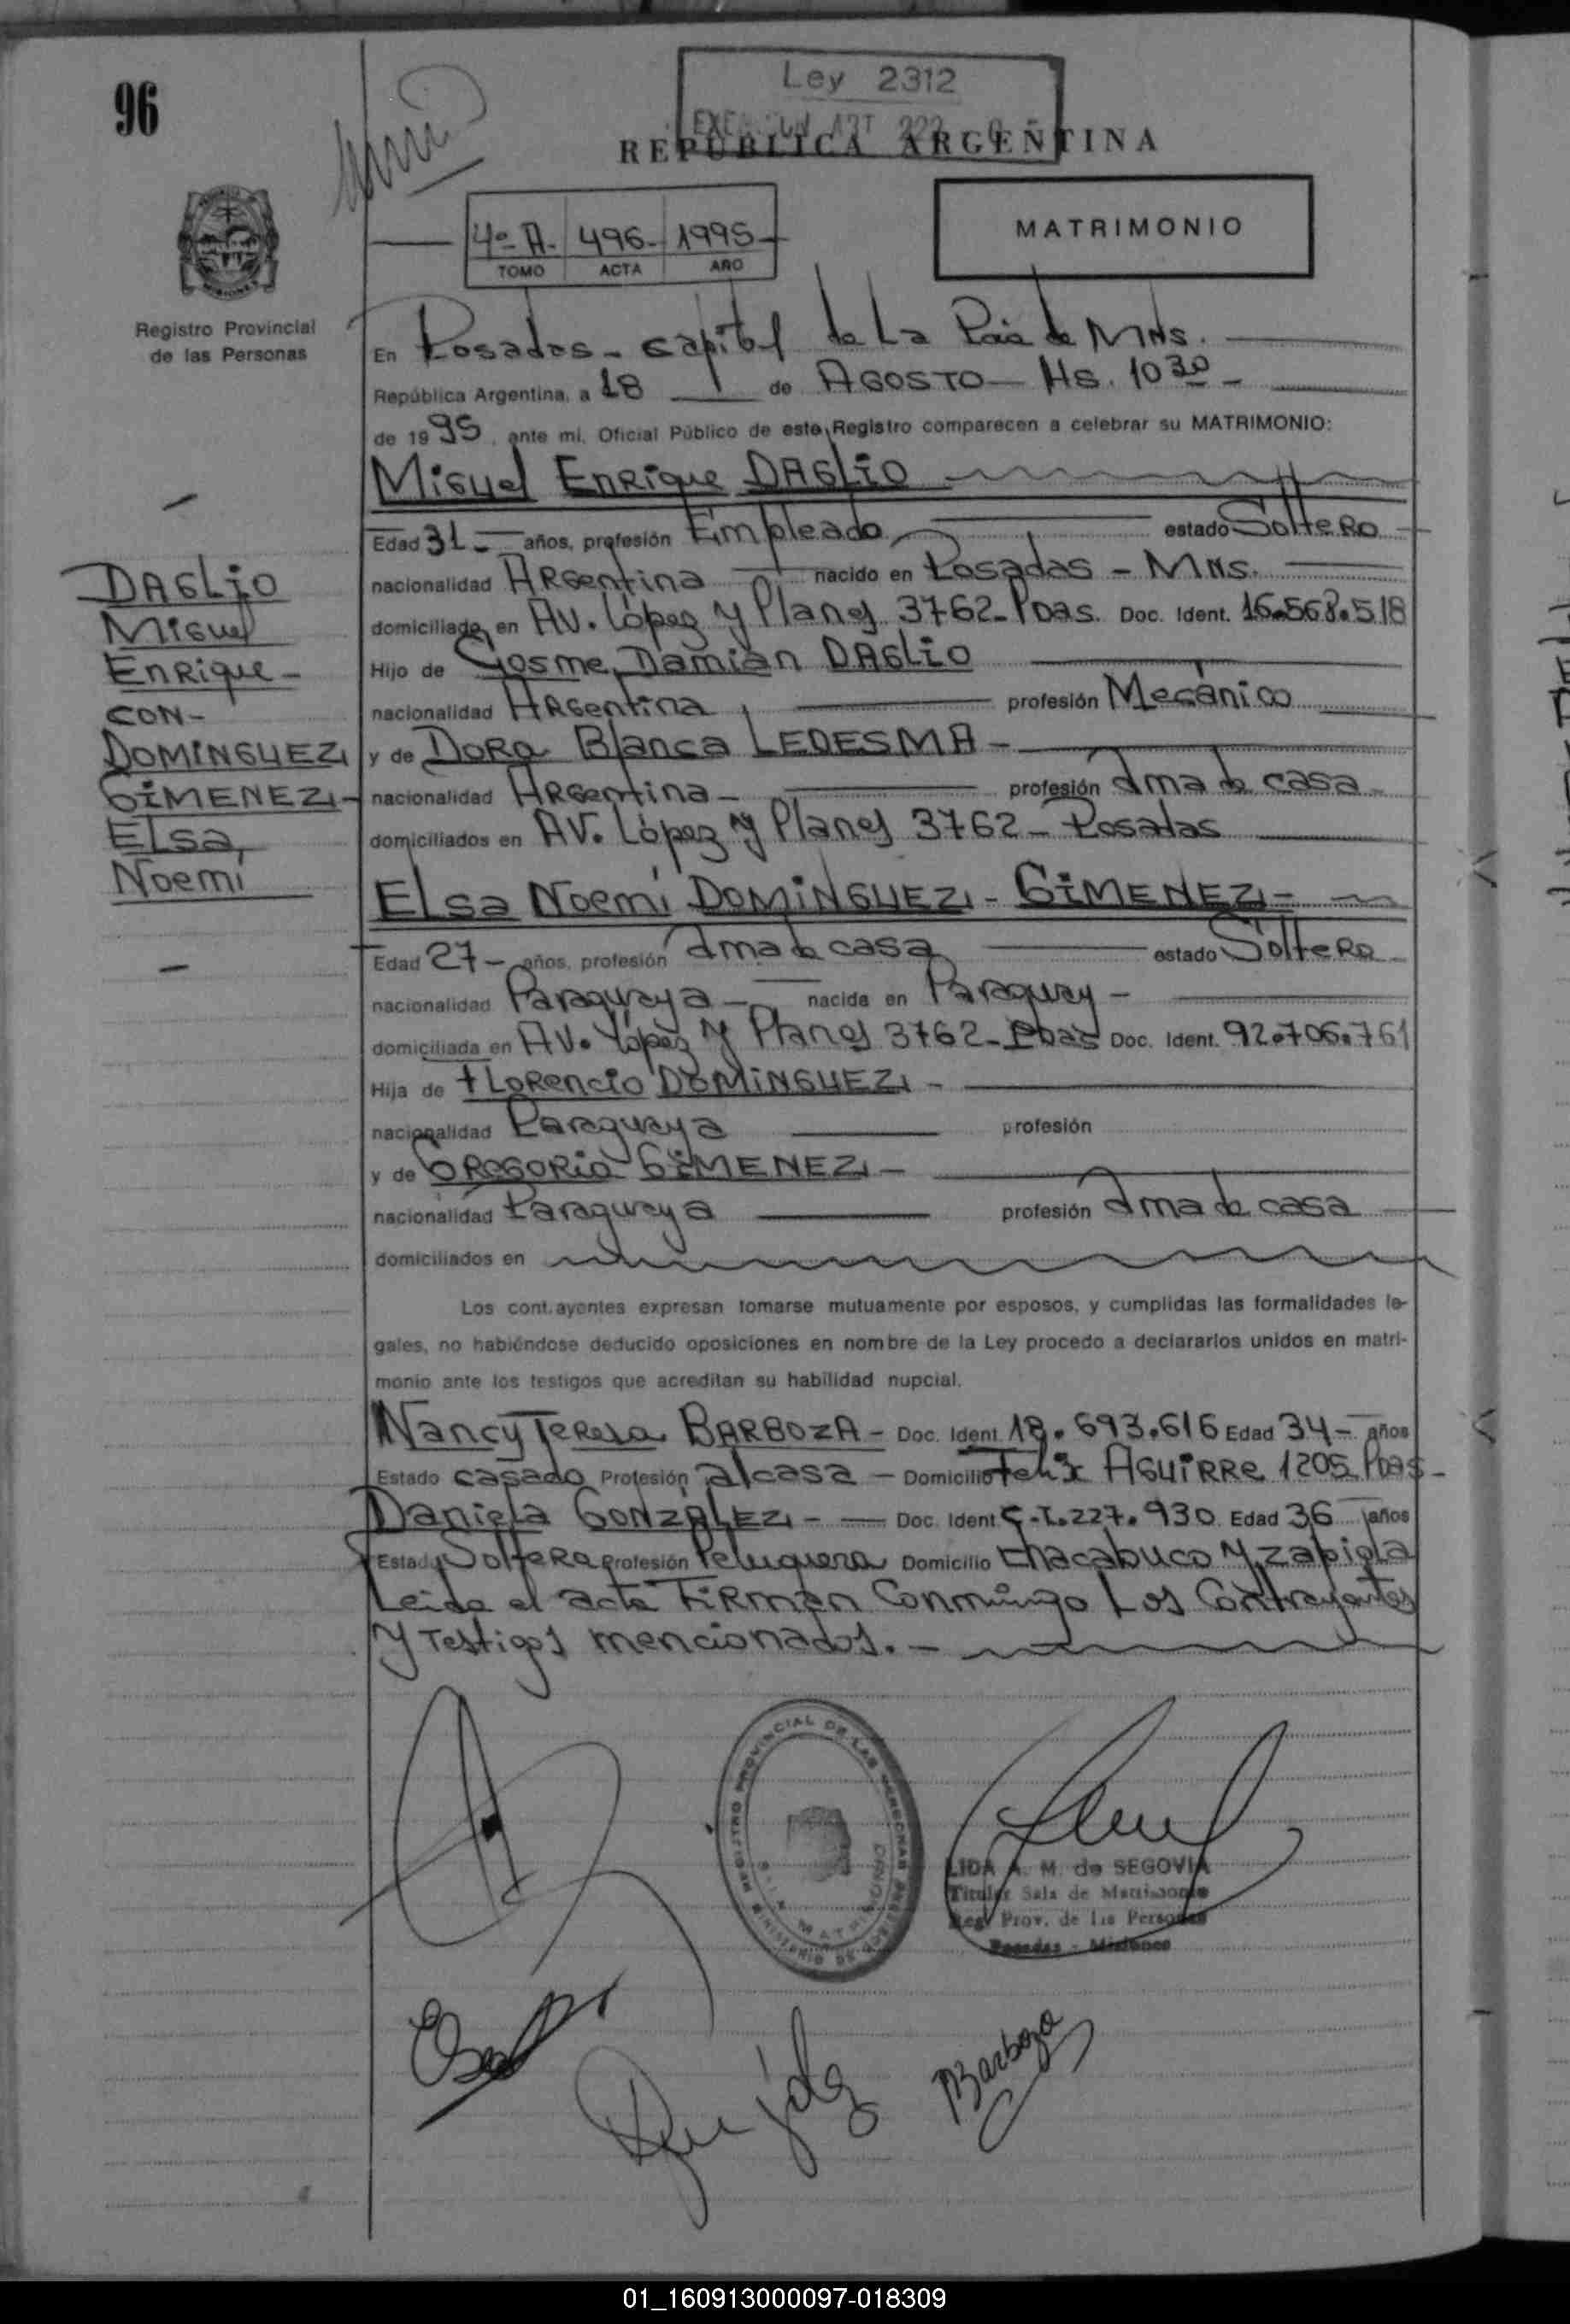 96
Ley 2312
REPUBLICA ARGENTINA
4º A. 496- 1995-
TOMO ACTA AÑO
MATRIMONIO
MISIONES
Registro Provincial
de las Personas
En Posadas - capital de La Pcia de MNs.
República Argentina, a 18 de AGOSTO - Hs. 10 30 -
de 1995, ante mi, Oficial Público de este Registro comparecen a celebrar su MATRIMONIO:
Miguel Enrique DAGLIO
Edad 31 - años, profesión Empleado estado Soltero
nacionalidad Argentina nacido en Posadas - MNs.
domiciliado en AV. López y Planes 3762 - Pdas. Doc. Ident. 16.568.518
Hijo de Cosme Damian DAGLIO
nacionalidad Argentina profesión Mecánico
y de Dora Blanca LEDESMA -
nacionalidad Argentina - profesión Ama de casa -
domiciliados en AV. López y Planes 3762 - Posadas
Elsa Noemí DOMINGUEZ - GIMENEZ -
Edad 27 - años, profesión Ama de casa estado Soltera
nacionalidad Paraguaya - nacida en Paraguay -
domiciliada en AV. López y Planes 3762 - Pdas Doc. Ident. 92.706.761
Hija de + Florencio DOMINGUEZ -
nacionalidad Paraguaya profesión
y de GREGORIA GIMENEZ -
nacionalidad Paraguaya profesión Ama de casa
domiciliados en
Los contrayentes expresan tomarse mutuamente por esposos, y cumplidas las formalidades le-
gales, no habiéndose deducido oposiciones en nombre de la Ley procedo a declararlos unidos en matri-
monio ante los testigos que acreditan su habilidad nupcial.
Nancy Teresa BARBOZA - Doc. Ident. 18.693.616 Edad 34 - años
Estado casado Profesión a/casa - Domicilio Felix AGUIRRE 1205 Pdas -
Daniela GONZÁLEZ - Doc. Ident. C.I. 227.930 Edad 36 años
Estado Soltera Profesión Peluquera Domicilio Chacabuco y Zapiola
Leida el acta Firman Conmingo Los Contrayentes
y Testigos mencionados. -
DAGLIO
Miguel
Enrique -
CON -
DOMINGUEZ
GIMENEZ -
Elsa
Noemí
REGISTRO PROVINCIAL DE LAS PERSONAS
LIDA A. M. de SEGOVIA
Titular Sala de Matrimonio
Reg. Prov. de las Personas
Posadas - Misiones
Barboza
01_160913000097-018309